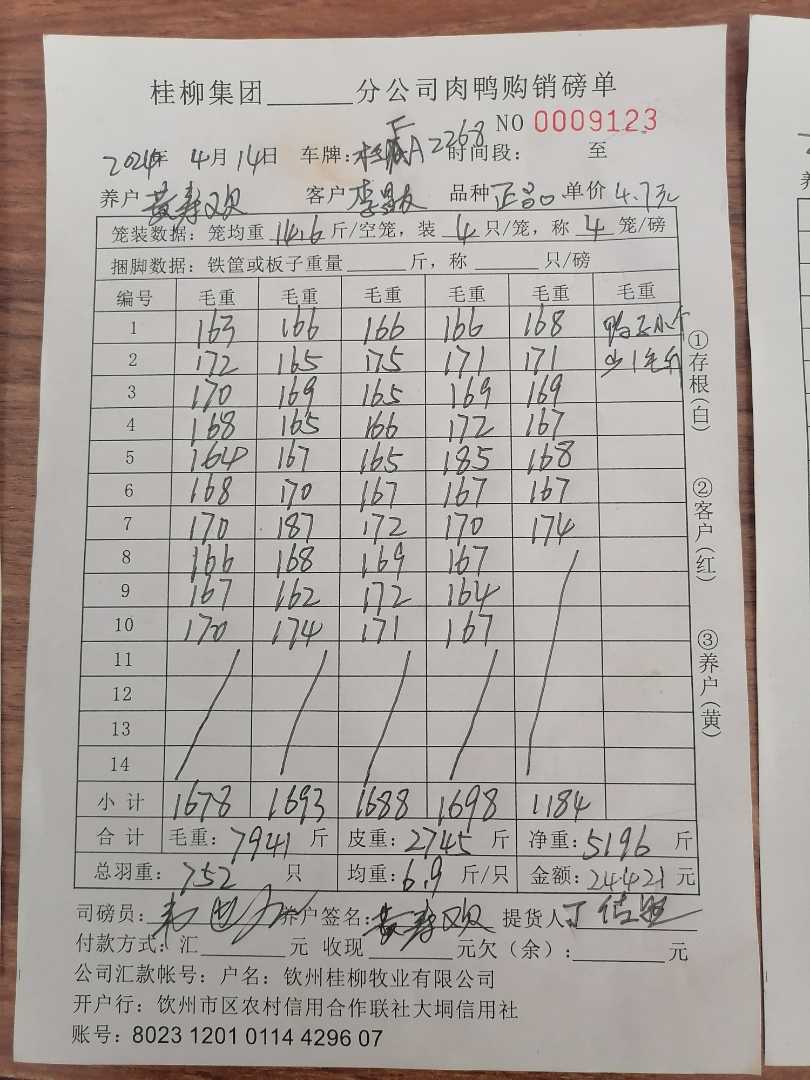 桂柳集团______分公司肉鸭购销磅单
NO 0009123
2024年 4月14日 车牌:桂A2268 时间段: 至
养户 黄寿欢 客户 李 品种 正品 单价 4.7元
笼装数据：笼均重 14.6 斤/空笼，装 4 只/笼，称 4 笼/磅
捆脚数据：铁筐或板子重量______斤，称______只/磅
编号 毛重 毛重 毛重 毛重 毛重 毛重
1 163 166 166 166 168 鸭子小个
2 172 165 175 171 171 少1毛/斤
3 170 169 165 169 169
4 168 165 166 172 167
5 164 167 165 185 168
6 168 170 167 167 167
7 170 187 172 170 174
8 166 168 169 167
9 167 162 172 164
10 170 174 171 167
11
12
13
14
小计 1678 1693 1688 1698 1184
合计 毛重：7941 斤 皮重：2745 斤 净重：5196 斤
总羽重：752 只 均重：6.9 斤/只 金额：24421 元
司磅员： 养户签名：黄寿欢 提货人
付款方式：汇______元 收现______元欠（余）：______元
公司汇款帐号：户名：钦州桂柳牧业有限公司
开户行：钦州市区农村信用合作联社大垌信用社
账号：8023 1201 0114 4296 07
①存根(白)
②客户(红)
③养户(黄)